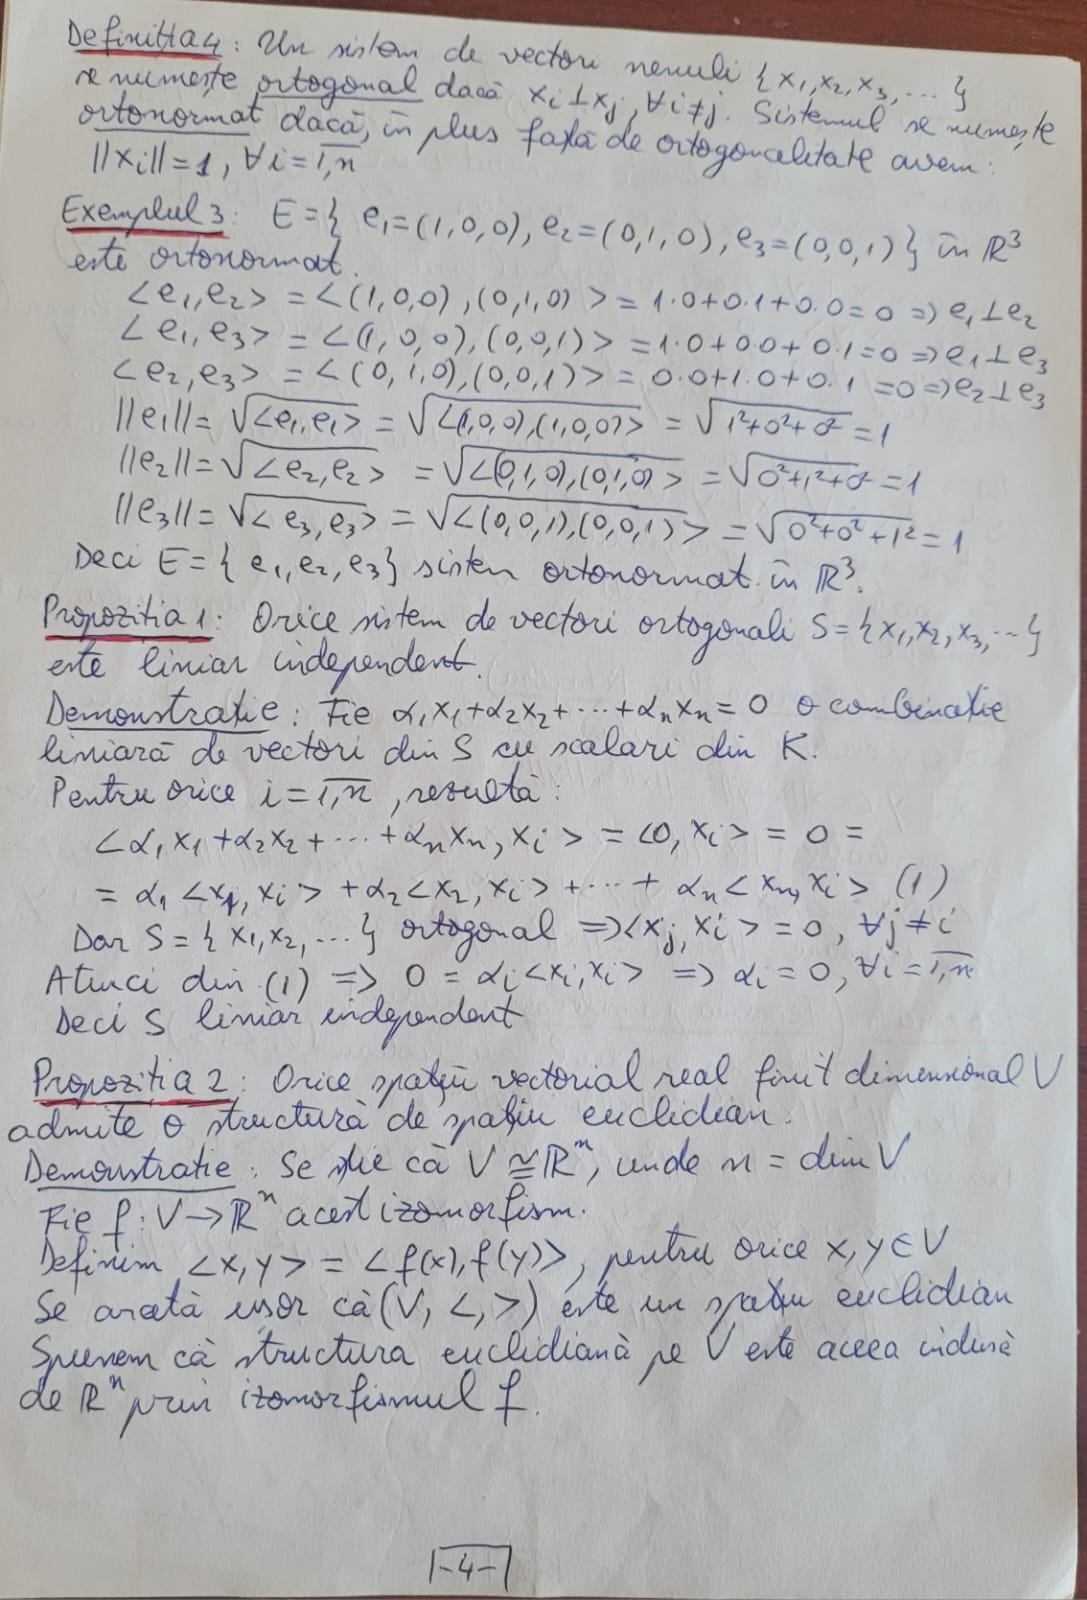 Definiția 4: Un sistem de vectori nenuli {x₁, x₂, x₃, ...}
se numește ortogonal dacă xᵢ ⊥ xⱼ, ∀i≠j. Sistemul se numește
ortonormat dacă, în plus față de ortogonalitate avem:
||xᵢ|| = 1, ∀i = 1,n̅
Exemplul 3: E = { e₁=(1,0,0), e₂=(0,1,0), e₃=(0,0,1) } în ℝ³
este ortonormat.
<e₁,e₂> = <(1,0,0),(0,1,0)> = 1·0+0·1+0·0=0 => e₁⊥e₂
<e₁,e₃> = <(1,0,0),(0,0,1)> = 1·0+0·0+0·1=0 => e₁⊥e₃
<e₂,e₃> = <(0,1,0),(0,0,1)> = 0·0+1·0+0·1=0 => e₂⊥e₃
||e₁|| = √<e₁,e₁> = √<(1,0,0),(1,0,0)> = √1²+0²+0² = 1
||e₂|| = √<e₂,e₂> = √<(0,1,0),(0,1,0)> = √0²+1²+0² = 1
||e₃|| = √<e₃,e₃> = √<(0,0,1),(0,0,1)> = √0²+0²+1² = 1
Deci E = { e₁,e₂,e₃} sistem ortonormat în ℝ³.
Propoziția 1: Orice sistem de vectori ortogonali S = {x₁,x₂,x₃,...}
este liniar independent.
Demonstrație: Fie α₁x₁+α₂x₂+...+αₙxₙ = 0 o combinație
liniară de vectori din S cu scalari din K.
Pentru orice i = 1,n̅, rezultă:
<α₁x₁+α₂x₂+...+αₙxₙ, xᵢ> = <0, xᵢ> = 0 =
= α₁<x₁, xᵢ> + α₂<x₂, xᵢ> +...+ αₙ<xₙ, xᵢ> (1)
Dar S = {x₁,x₂,...} ortogonal => <xⱼ, xᵢ> = 0, ∀j≠i
Atunci din (1) => 0 = αᵢ<xᵢ,xᵢ> => αᵢ = 0, ∀i = 1,n̅
Deci S liniar independent
Propoziția 2: Orice spațiu vectorial real finit dimensional V
admite o structură de spațiu euclidian.
Demonstrație: Se știe că V ≅ ℝⁿ, unde n = dim V
Fie f: V→ℝⁿ acest izomorfism.
Definim <x,y> = <f(x), f(y)>, pentru orice x,y ∈ V
Se arată ușor că (V, <,>) este un spațiu euclidian
Spunem că structura euclidiană pe V este aceea indusă
de ℝⁿ prin izomorfismul f.
-4-